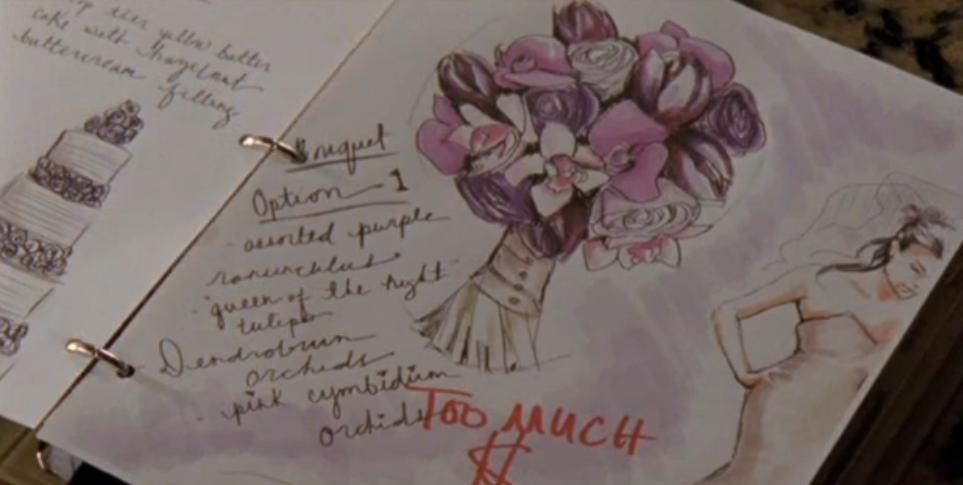 top tier yellow butter
cake with Hazelnut
buttercream
filling
Bouquet
Option 1
- assorted purple
ranunculus
- "queen of the night"
tulips
- Dendrobium
orchids
- pink cymbidium
orchids
TOO MUCH
$